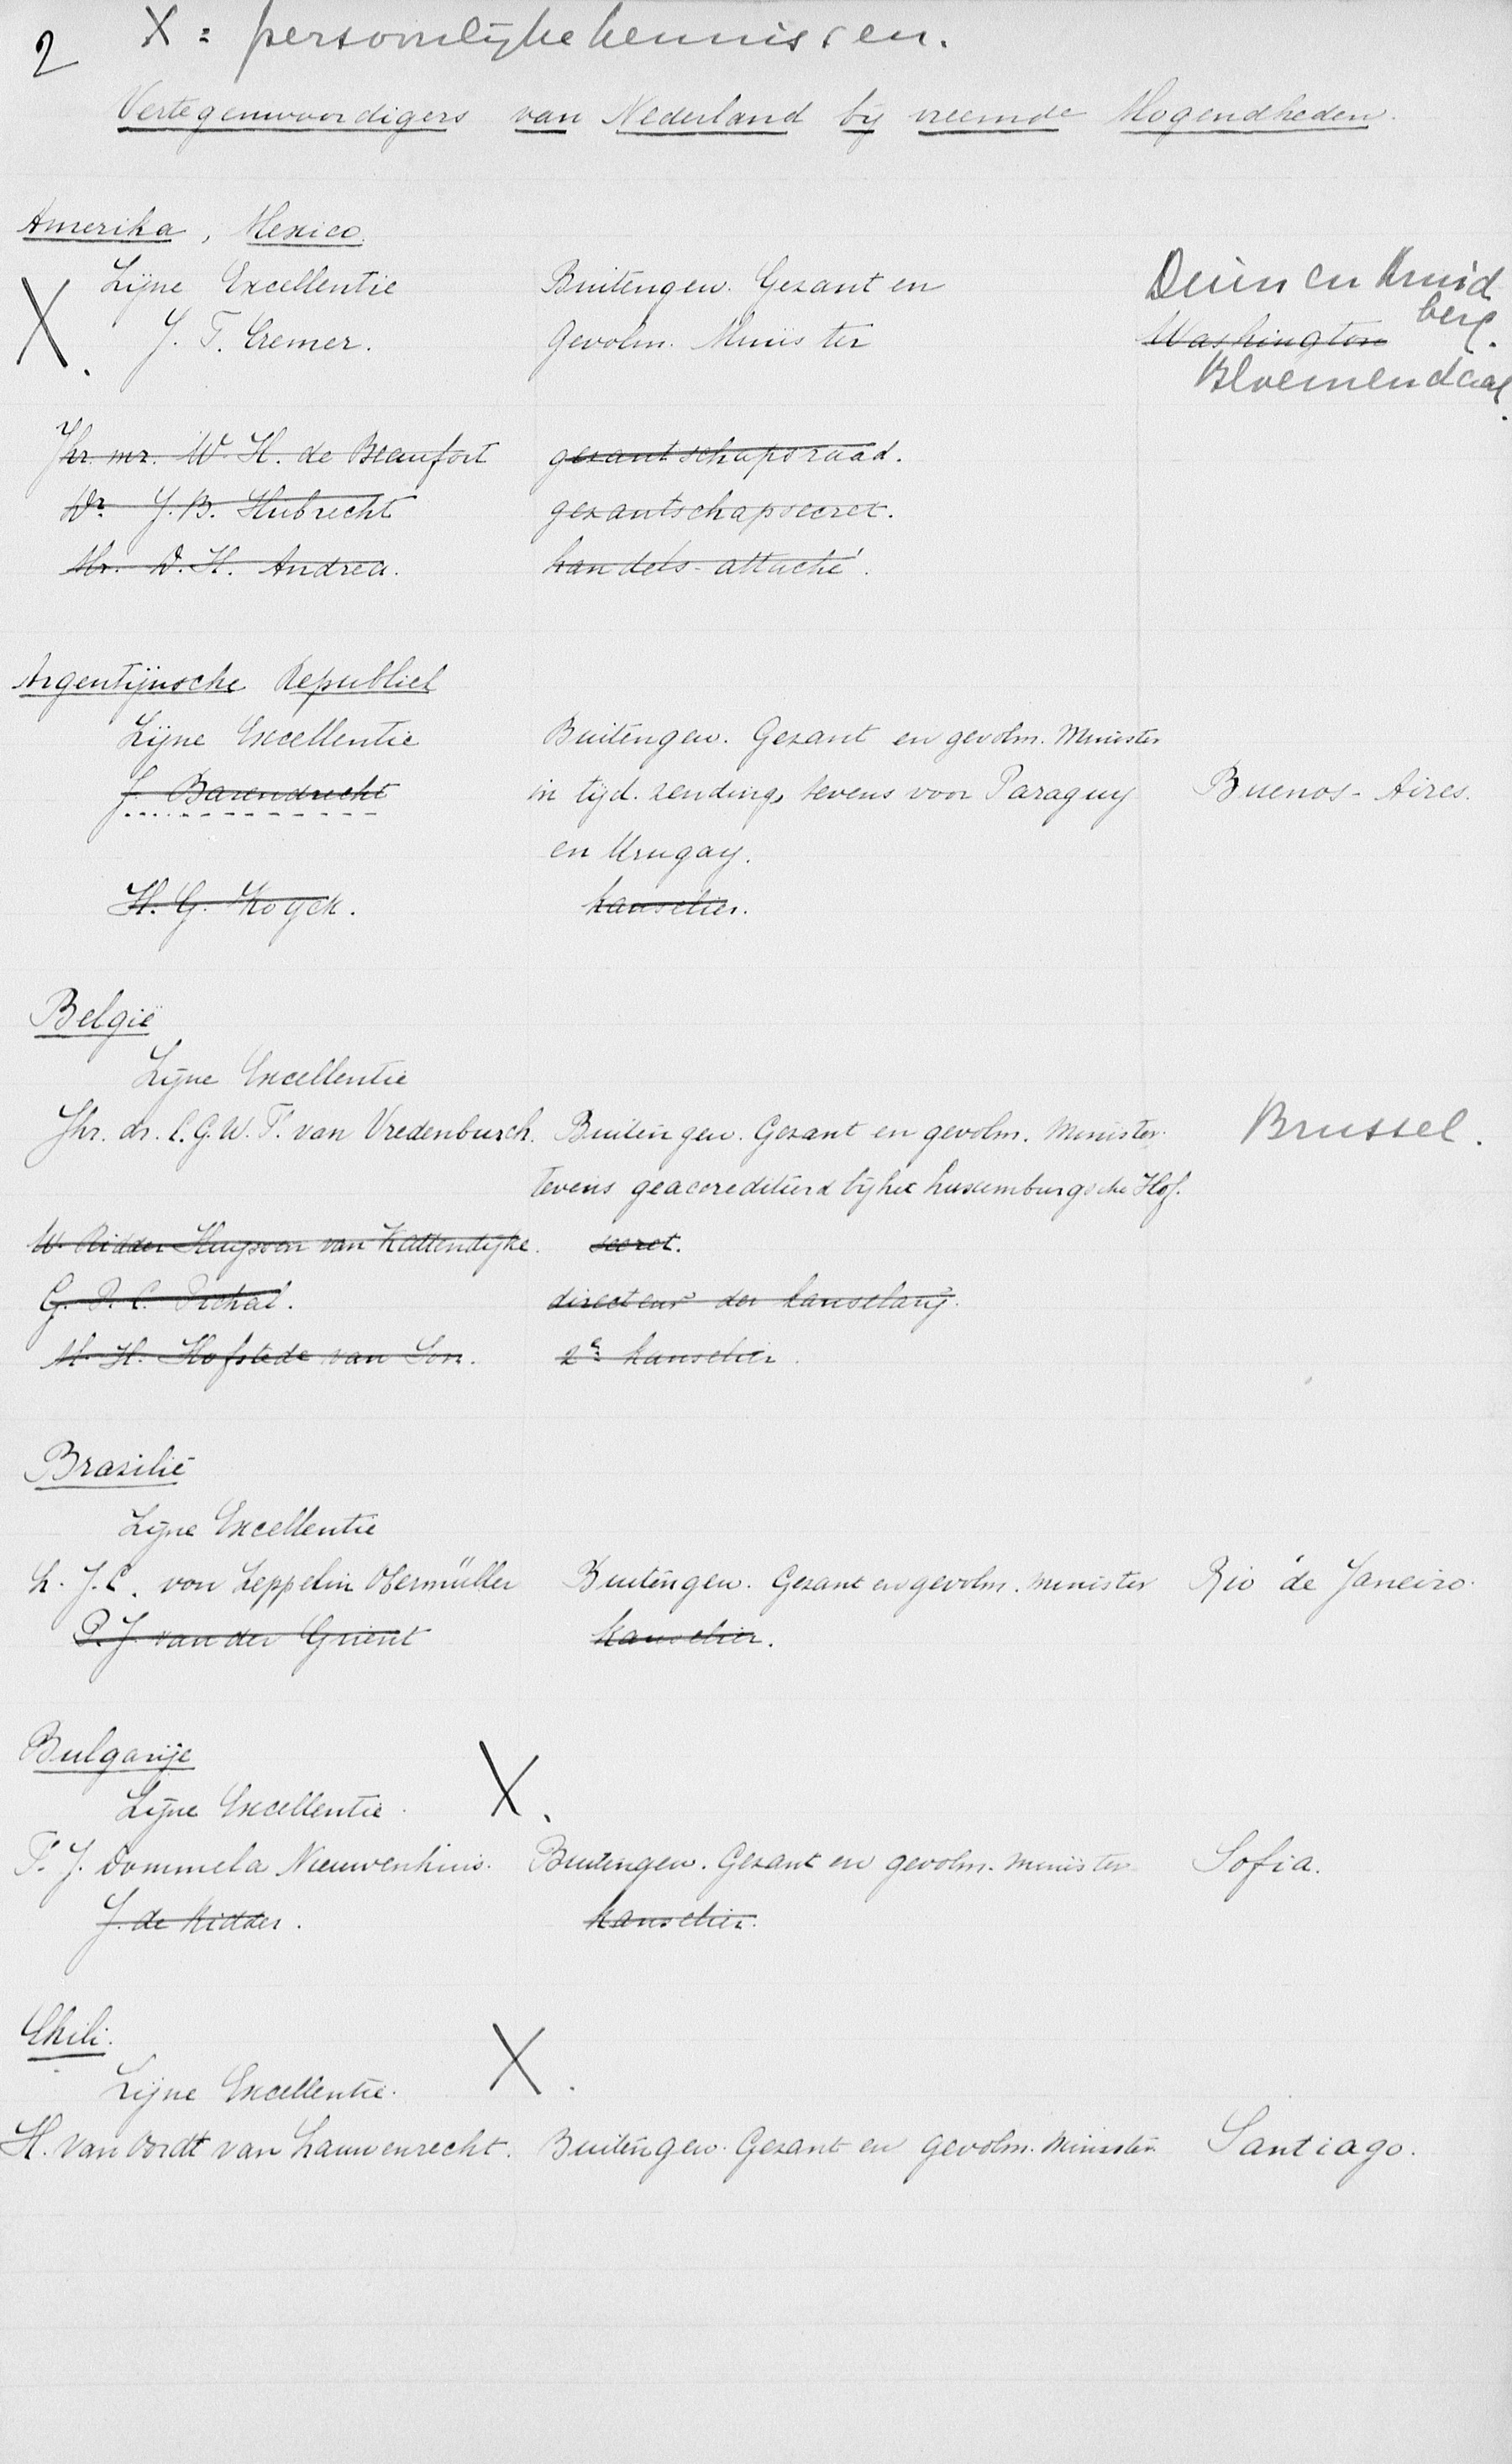 2 X = persoonlijke kennissen.
Vertegenwoordigers van Nederland bij vreemde Mogendheden.
Amerika, Mexico.
Zijne Excellentie Buitengew. Gezant en Duin en Kruid
berg.
X. J. T. Cremer. Gevolm. Minister Washington
Bloemendaal.
Jhr. mr. W. H. de Beaufort gezantschapsraad.
Dr. J. B. Hubrecht gezantschapsecret.
Mr. D. H. Andrea. handels-attaché.
Argentijnsche Republiek
Zijne Excellentie Buitengew. Gezant en gevolm. Minister
J. Barendrecht in tijd. zending, tevens voor Paraguy Buenos-Aires.
en Urugay.
H. G. Koyck. kanselier.
België
Zijne Excellentie
Jhr. dr. C. G. W. F. van Vredenburch. Buitengew. Gezant en gevolm. Minister Brussel.
tevens geaccrediteerd bij het Luxemburgsche Hof.
W. Ridder Huyssen van Kattendijke. secret.
G. P. C. Pichal. directeur der kanselarij.
M. H. Hofstede van Son. 2e kanselier.
Brazilië
Zijne Excellentie
L. J. C. von Zeppelin Obermüller Buitengew. Gezant en gevolm. minister Rio de Janeiro.
P. J. van der Grient kanselier.
Bulgarije
Zijne Excellentie. X.
F. J. Dommela Nieuwenhuis. Buitengew. Gezant en gevolm. minister Sofia.
J. de Ridder. kanselier.
Chili.
Zijne Excellentie. X.
H. van Oordt van Lauwenrecht. Buitengew. Gezant en gevolm. Minister Santiago.